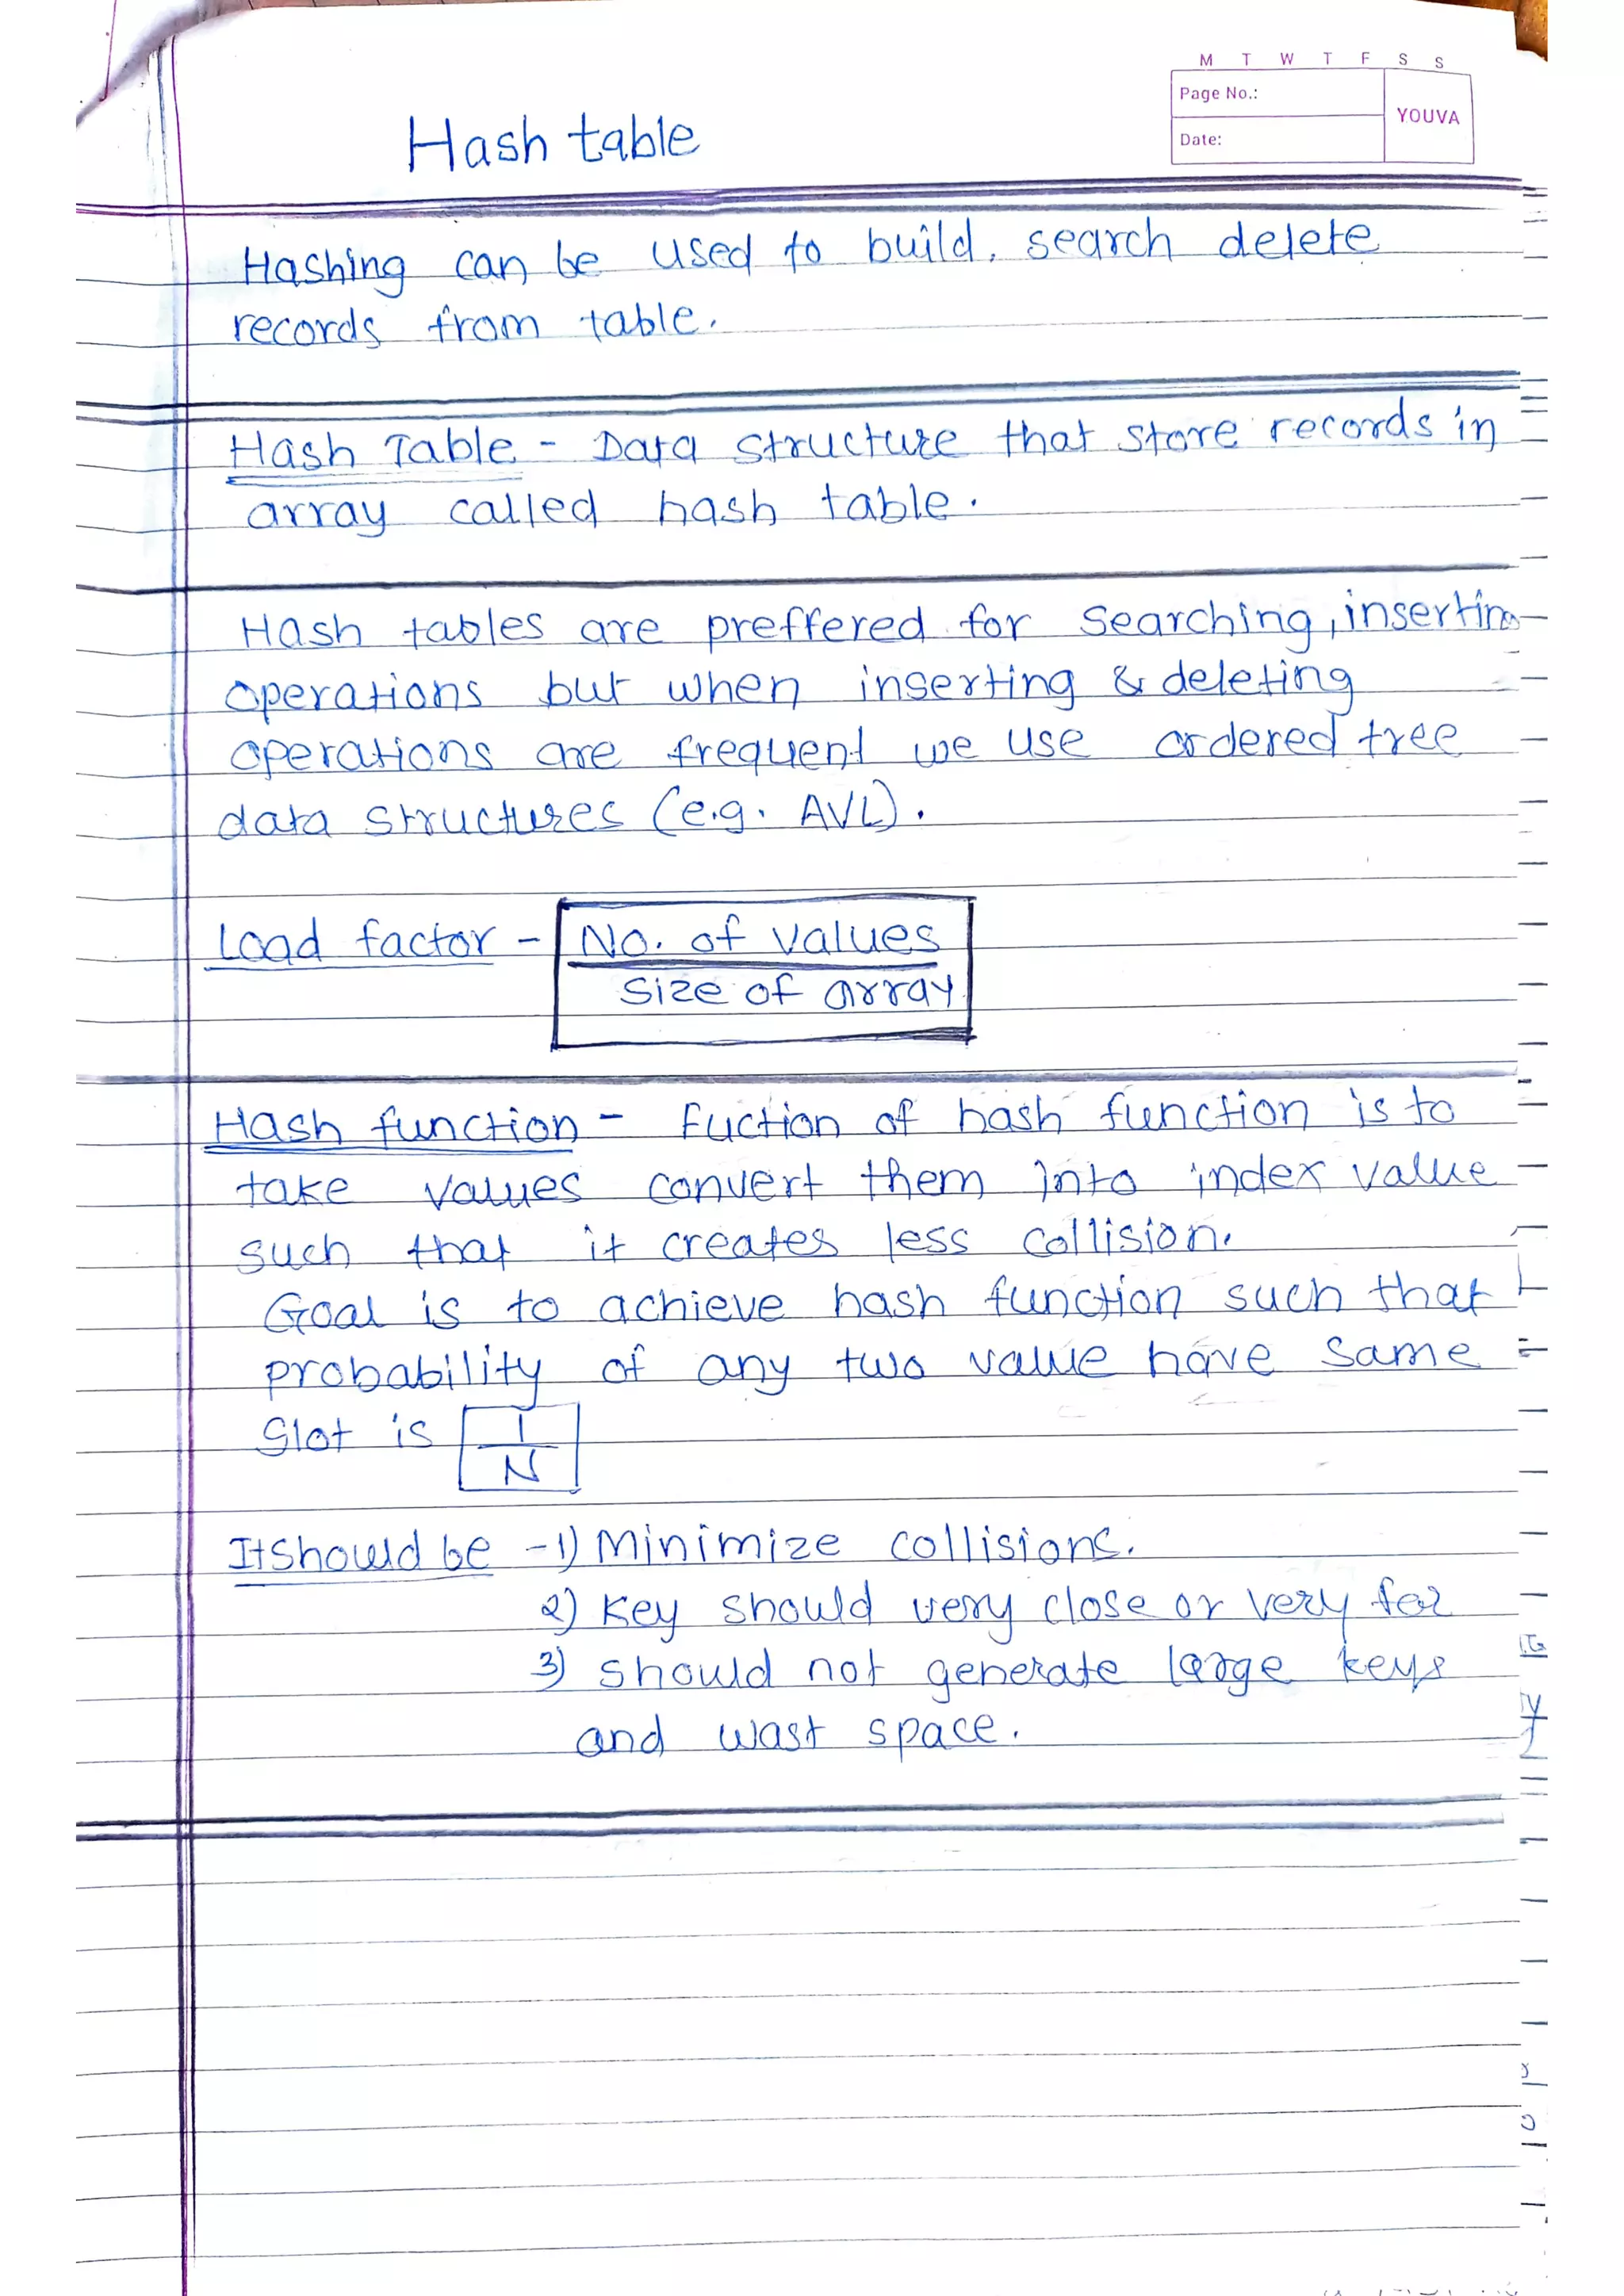 M T W T F S S
Page No.:
YOUVA
Date:
Hash table
Hashing can be used to build, search delete
records from table.
Hash Table - Data structure that store records in
array called hash table.
Hash tables are preffered for searching, inserting
operations but when inserting & deleting
operations are frequent we use ordered tree
data structures (e.g. AVL).
Load factor - No. of values
Size of array
Hash function - Fuction of hash function is to
take values convert them into index value
such that it creates less collision.
Goal is to achieve hash function such that
probability of any two value have same
slot is 1
N
It should be - 1) Minimize collisions.
2) Key should very close or very far
3) should not generate large keys
and wast space.